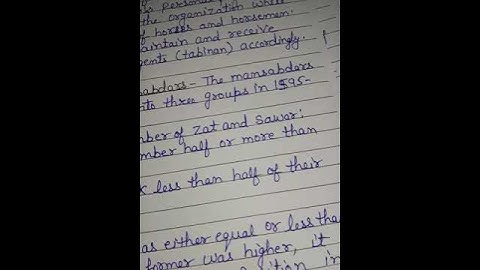 the organization
of horses and horsemen.
maintain and receive
(tabinan) accordingly.
The mansabdars
three groups in 1595-
of Zat and Sawar:
half or more than
less than half of their
as either equal or less tha
former was higher, it
in